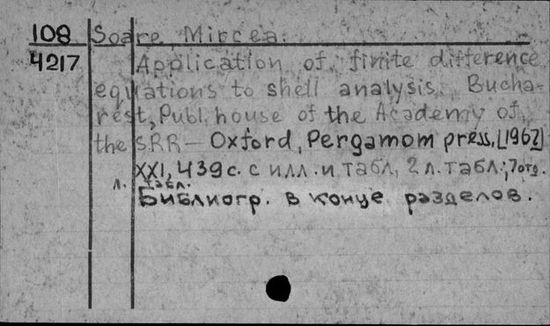 108 Soare, Mircea.
4217 Application of finite difference
equations to shell analysis. Bucha-
rest, Publ. house of the Academy of
the SRR — Oxford, Pergamom press, [1967]
XXI, 439 с. с илл. и табл, 2 л. табл.; 7 отд.
л. табл.
Библиогр. в конце разделов.